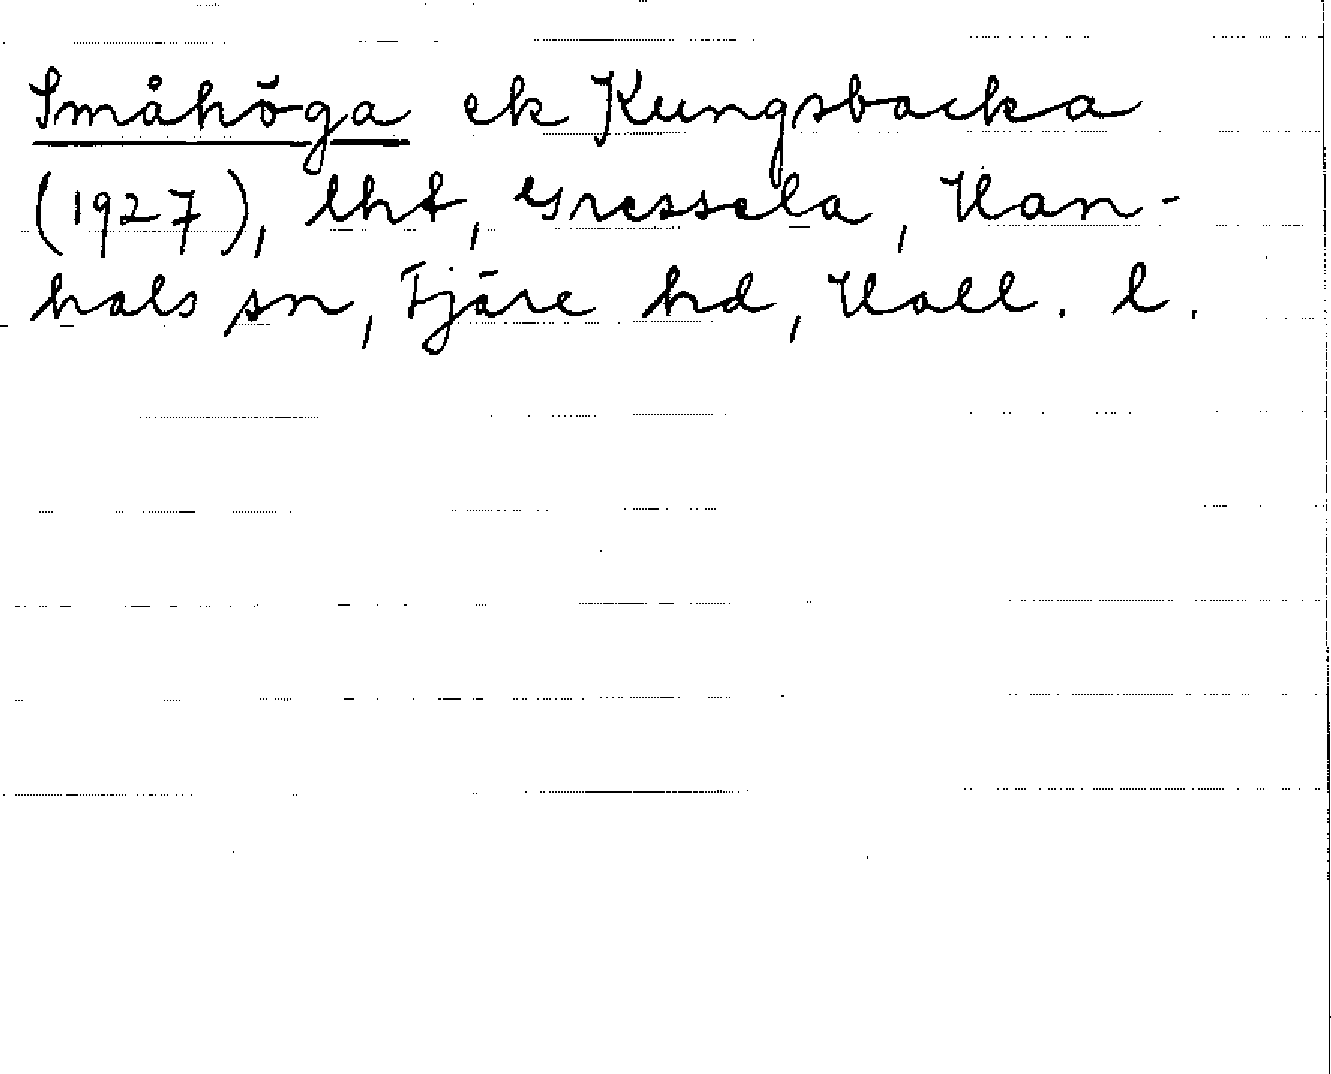 Småhöga ek Kungsbacka
(1927), lht, Gressela, Han-
hals sn, Fjäre hd, Hall. l.